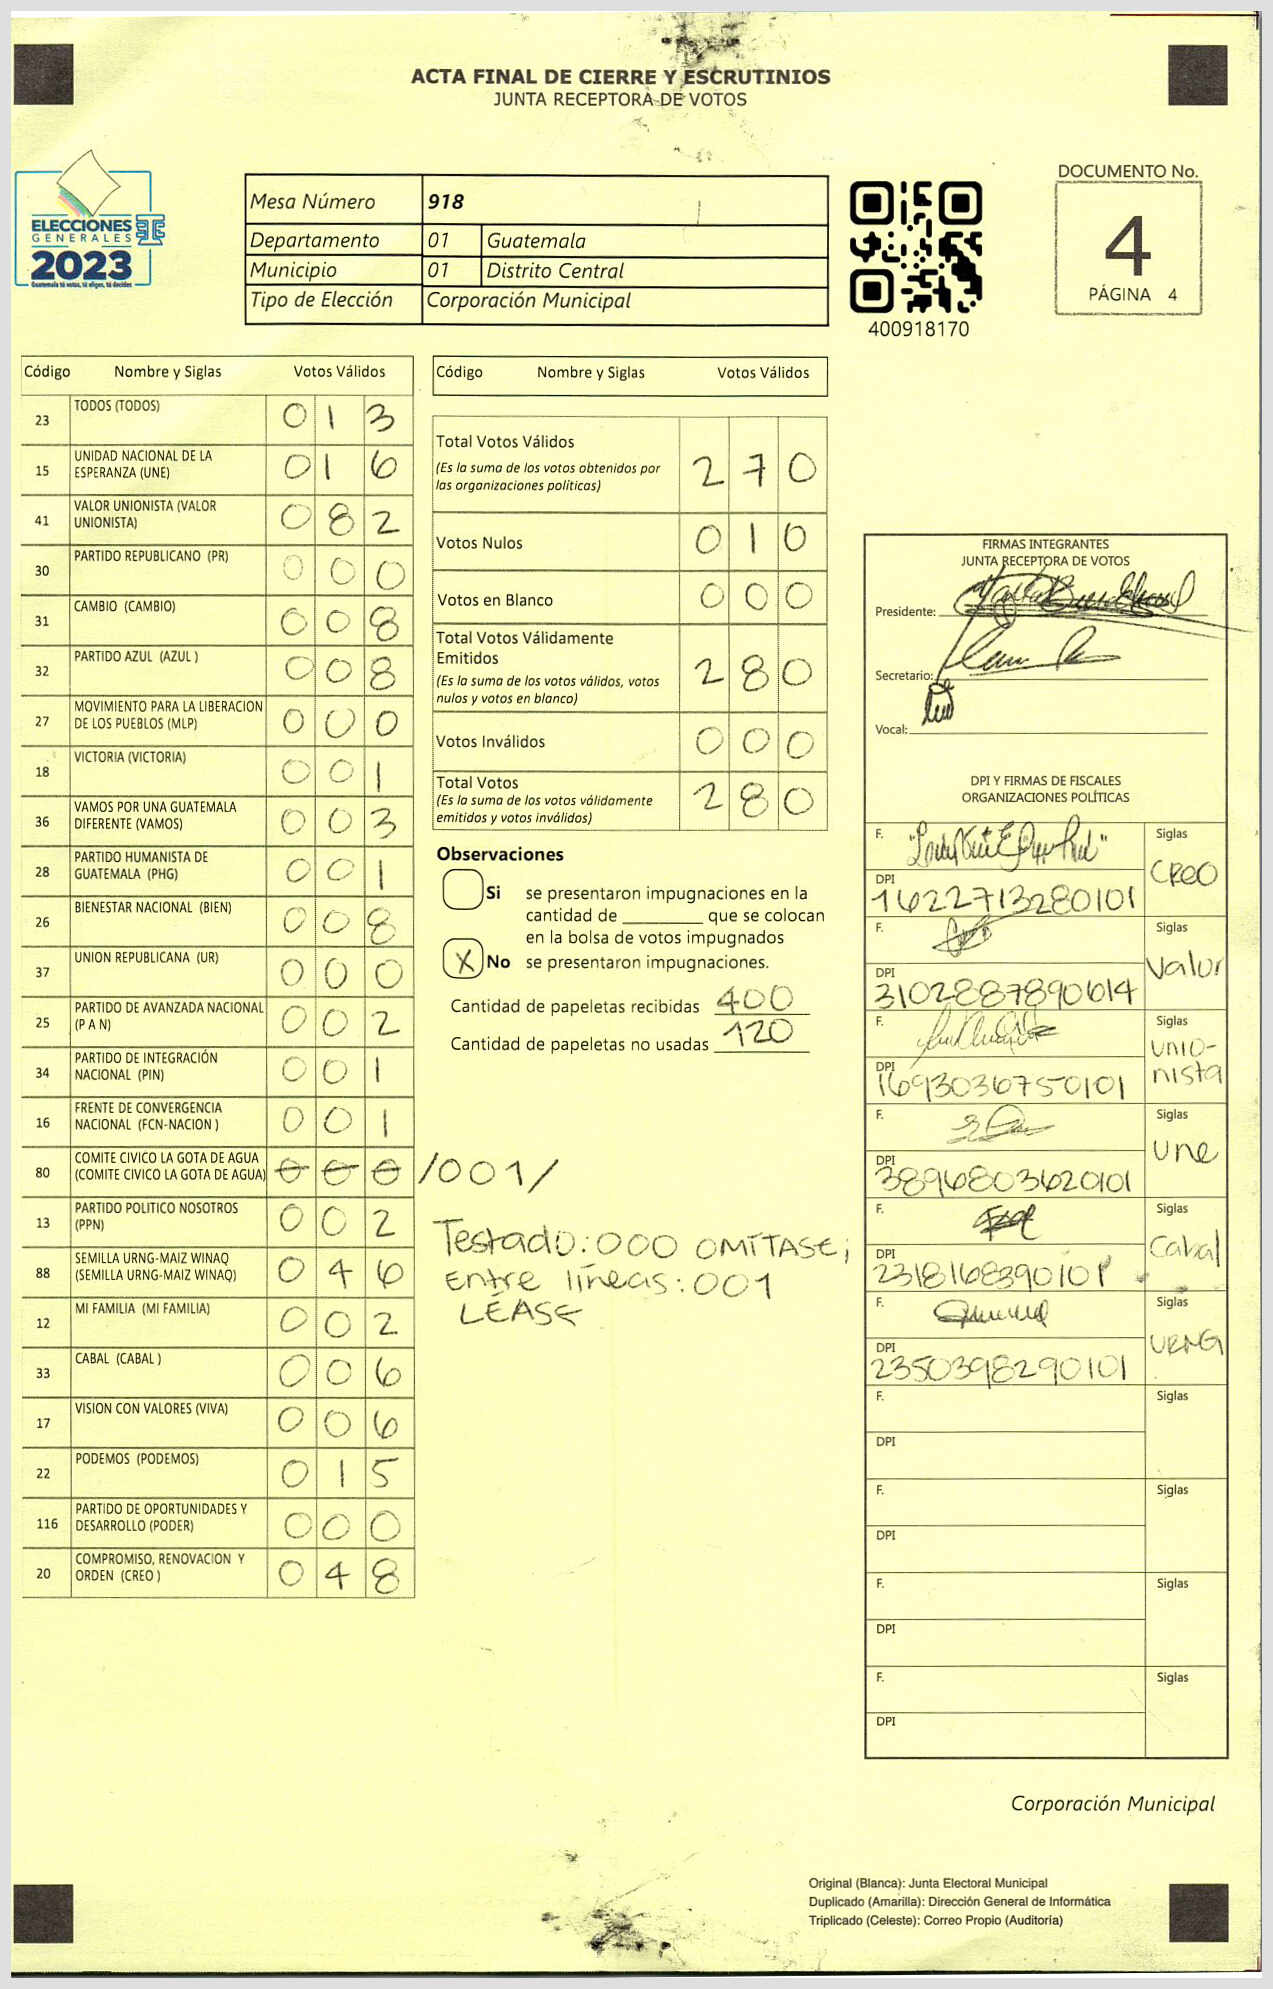 ACTA FINAL DE CIERRE Y ESCRUTINIOS
JUNTA RECEPTORA DE VOTOS
ELECCIONES
GENERALES
2023
Guatemala tú votas, tú eliges, tú decides
Mesa Número 918
Departamento 01 Guatemala
Municipio 01 Distrito Central
Tipo de Elección Corporación Municipal
400918170
DOCUMENTO No.
4
PÁGINA 4
Código Nombre y Siglas Votos Válidos
23 TODOS (TODOS) 0 1 3
15 UNIDAD NACIONAL DE LA
ESPERANZA (UNE) 0 1 6
41 VALOR UNIONISTA (VALOR
UNIONISTA) 0 8 2
30 PARTIDO REPUBLICANO (PR) 0 0 0
31 CAMBIO (CAMBIO) 0 0 8
32 PARTIDO AZUL (AZUL ) 0 0 8
27 MOVIMIENTO PARA LA LIBERACION
DE LOS PUEBLOS (MLP) 0 0 0
18 VICTORIA (VICTORIA) 0 0 1
36 VAMOS POR UNA GUATEMALA
DIFERENTE (VAMOS) 0 0 3
28 PARTIDO HUMANISTA DE
GUATEMALA (PHG) 0 0 1
26 BIENESTAR NACIONAL (BIEN) 0 0 8
37 UNION REPUBLICANA (UR) 0 0 0
25 PARTIDO DE AVANZADA NACIONAL
(P A N) 0 0 2
34 PARTIDO DE INTEGRACIÓN
NACIONAL (PIN) 0 0 1
16 FRENTE DE CONVERGENCIA
NACIONAL (FCN-NACION ) 0 0 1
80 COMITE CIVICO LA GOTA DE AGUA
(COMITE CIVICO LA GOTA DE AGUA) 0 0 0 /001/
13 PARTIDO POLITICO NOSOTROS
(PPN) 0 0 2
88 SEMILLA URNG-MAIZ WINAQ
(SEMILLA URNG-MAIZ WINAQ) 0 4 6
12 MI FAMILIA (MI FAMILIA) 0 0 2
33 CABAL (CABAL ) 0 0 6
17 VISION CON VALORES (VIVA) 0 0 6
22 PODEMOS (PODEMOS) 0 1 5
116 PARTIDO DE OPORTUNIDADES Y
DESARROLLO (PODER) 0 0 0
20 COMPROMISO, RENOVACION Y
ORDEN (CREO ) 0 4 8
Código Nombre y Siglas Votos Válidos
Total Votos Válidos
(Es la suma de los votos obtenidos por
las organizaciones políticas) 2 7 0
Votos Nulos 0 1 0
Votos en Blanco 0 0 0
Total Votos Válidamente
Emitidos 2 8 0
(Es la suma de los votos válidos, votos
nulos y votos en blanco)
Votos Inválidos 0 0 0
Total Votos 2 8 0
(Es la suma de los votos válidamente
emitidos y votos inválidos)
Observaciones
Si se presentaron impugnaciones en la
cantidad de ________ que se colocan
en la bolsa de votos impugnados
X No se presentaron impugnaciones.
Cantidad de papeletas recibidas 400
Cantidad de papeletas no usadas 120
Testado: 000 OMÍTASE;
Entre líneas: 001
LÉASE
FIRMAS INTEGRANTES
JUNTA RECEPTORA DE VOTOS
Presidente:
Secretario:
Vocal:
DPI Y FIRMAS DE FISCALES
ORGANIZACIONES POLÍTICAS
F. Siglas
CREO
DPI
1622713280101
F. Siglas
Valor
DPI
3102887890614
F. Siglas
UNIO-
nista
DPI
1693036750101
F. Siglas
Une
DPI
3896803620101
F. Siglas
Cabal
DPI
2318168390101
F. Siglas
URNG
DPI
2350398290101
F. Siglas
DPI
F. Siglas
DPI
F. Siglas
DPI
F. Siglas
DPI
Corporación Municipal
Original (Blanca): Junta Electoral Municipal
Duplicado (Amarilla): Dirección General de Informática
Triplicado (Celeste): Correo Propio (Auditoría)